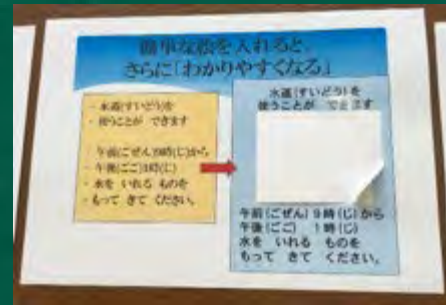 簡単な絵を入れると、
さらに「わかりやすくなる」
・水道(すいどう)を
・使うことが できます
・午前(ごぜん)9時(じ)から
・午後(ごご)1時(じ)
・水を いれる ものを
・もって きて ください。
水道(すいどう)を
使うことが できます
午前(ごぜん)9時(じ)から
午後(ごご) 1時(じ)
水を いれる ものを
もって きて ください。